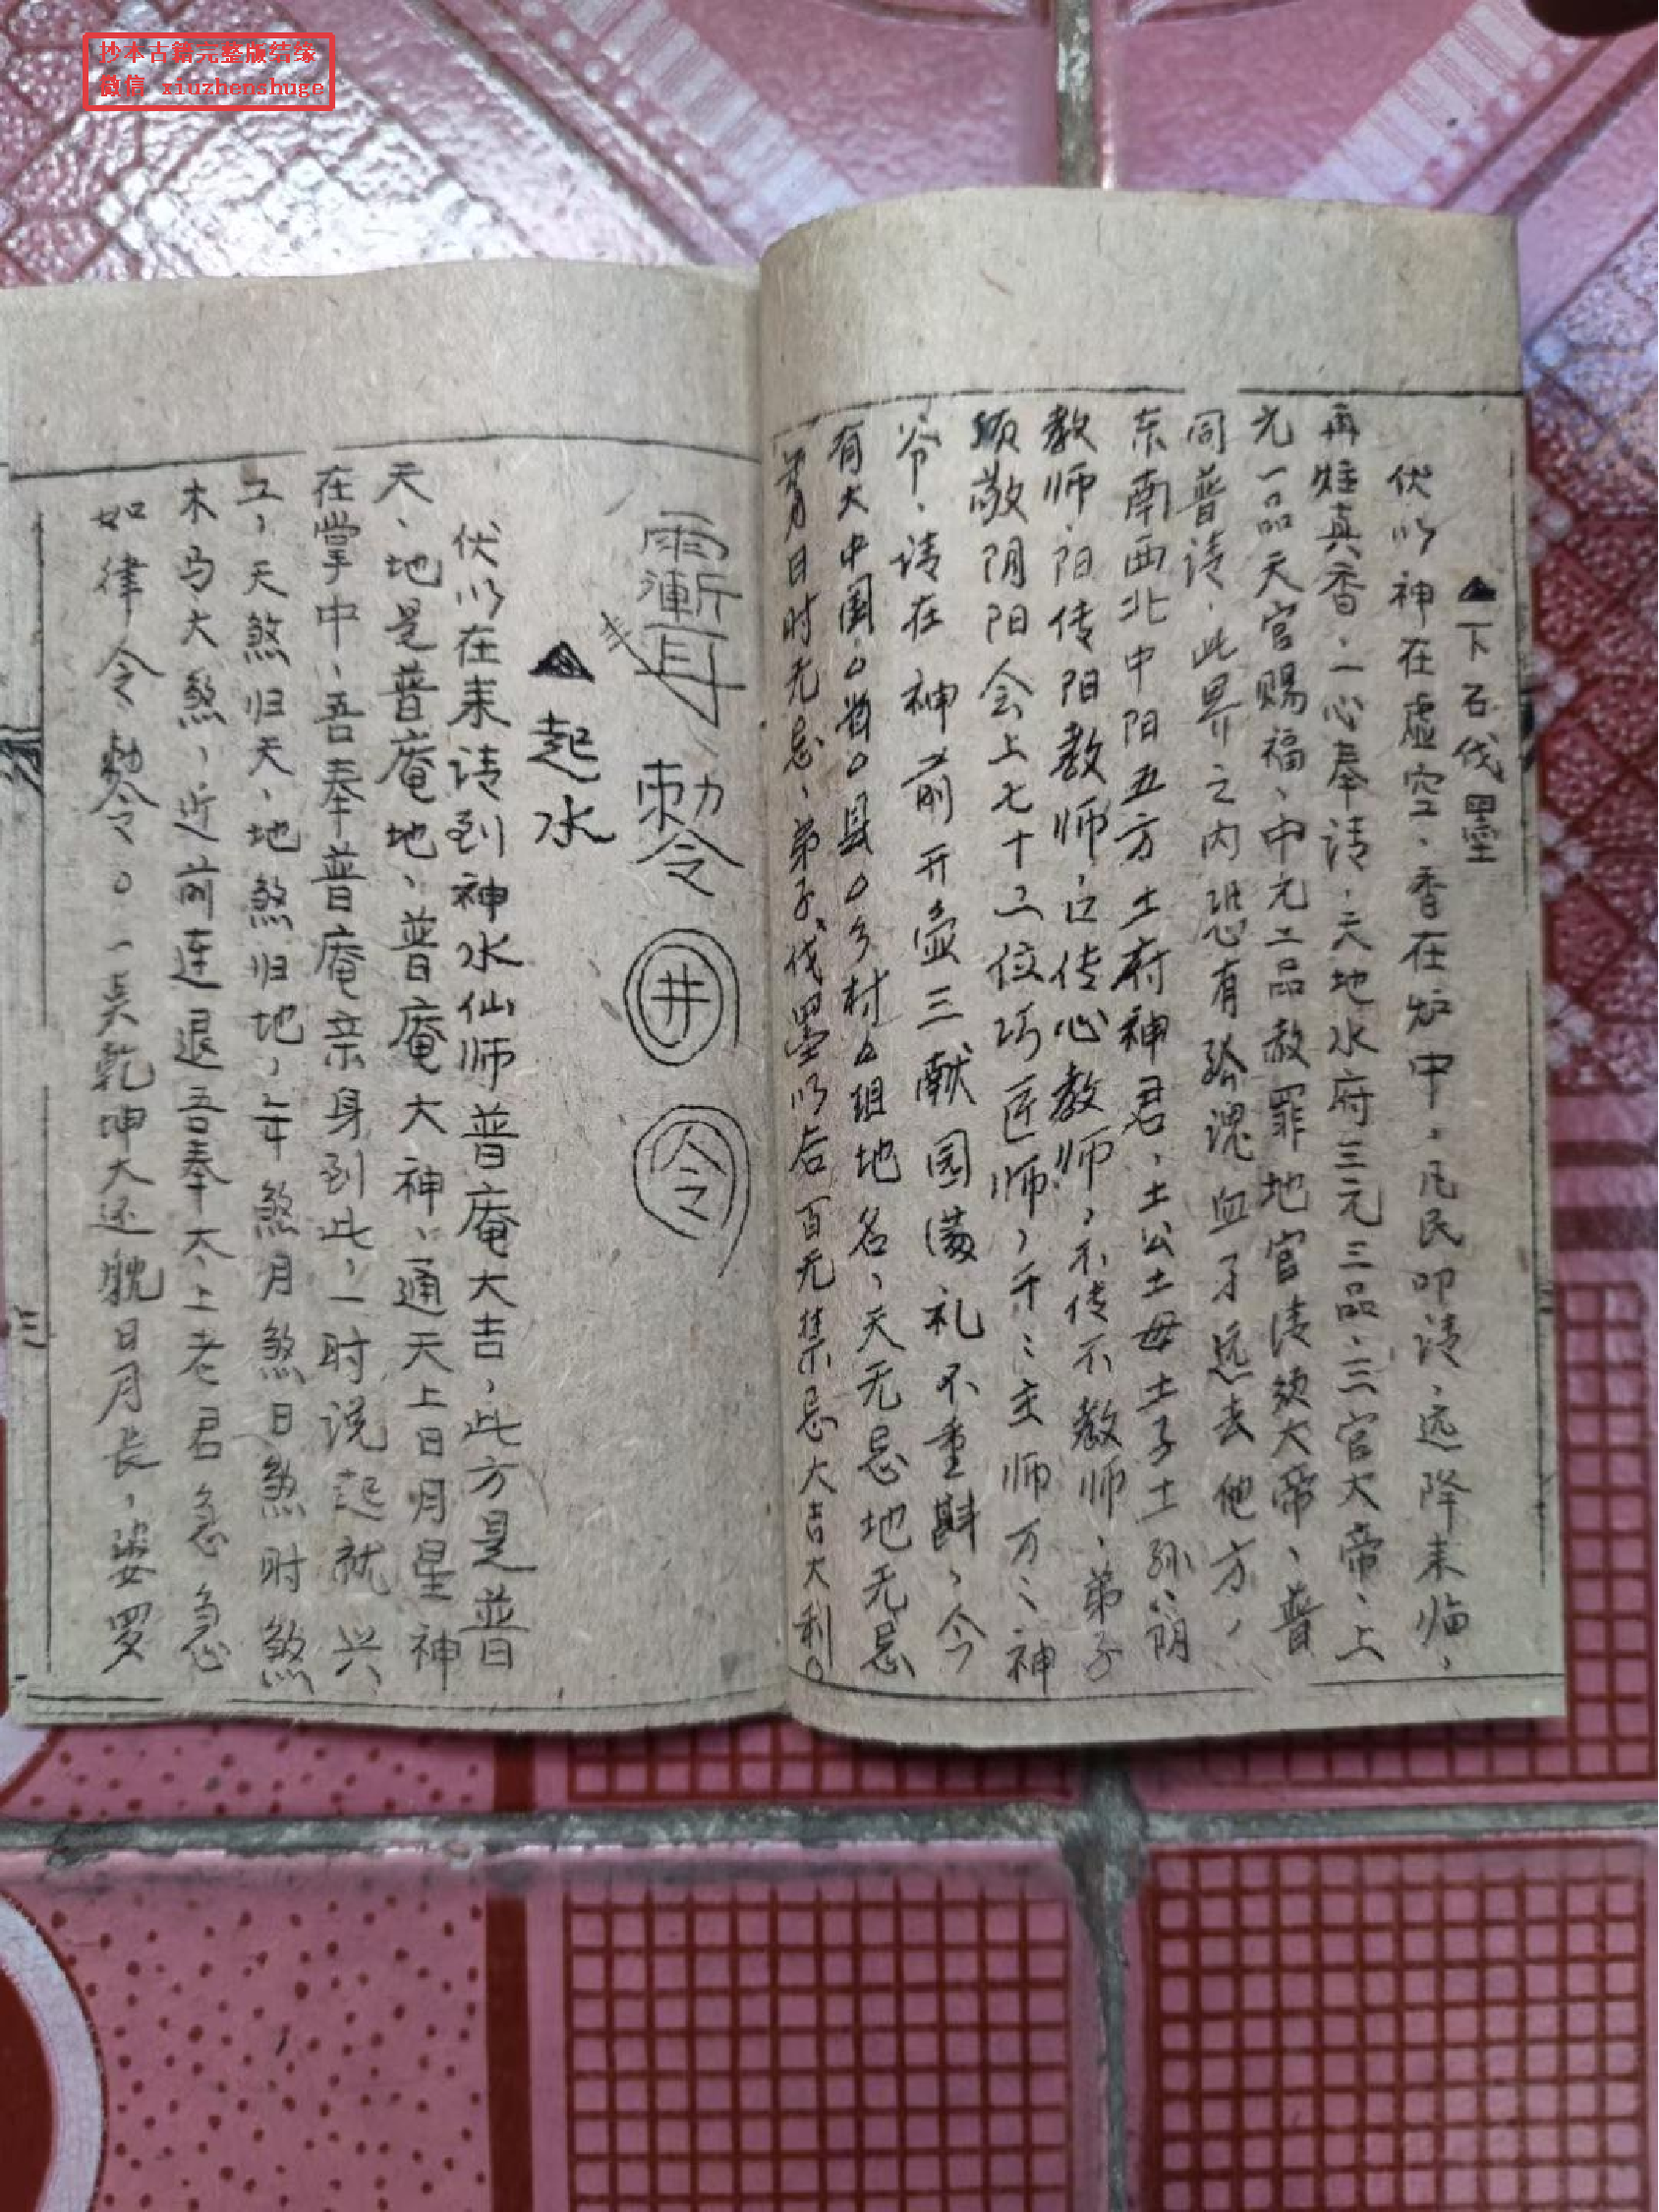 抄本古籍完整版结缘
微信 xiuzhenshuge
▲下石伐墨
伏以神在虚空、香在炉中、凡民叩请、远降来临、
再炷真香、一心奉请、天地水府三元三品、三官大帝、上
元一品天官赐福、中元二品赦罪地官清须大帝、普
同普请、此界之内恐有 魂血子 去他方、
东南西北中阳五方土府神君、土公土母土子土孙、阴
教师、阳传阳教师、口传心教师、不传不教师、弟子
须敬阴阳会上七十二位巧匠师、千〻主师万〻神
爷、请在神前开壶三献园满礼不重斟、今
有大中国〇省〇县〇乡村〇组地名、天无忌地无忌
日时无忌、弟子伐墨以后百无禁忌大吉大利。
勅令 井 令
▲起水
伏以在来请到神水仙师普庵大吉、此方是普
天、地是普庵地、普庵大神、通天上日月星神
在掌中、吾奉普庵亲身到此、一时说起就兴
工、天煞归天、地煞归地、年煞月煞日煞时煞
木马大煞、近前速退吾奉太上老君急急
如律令勅令。一 乾坤大还 日月长、娑罗
三